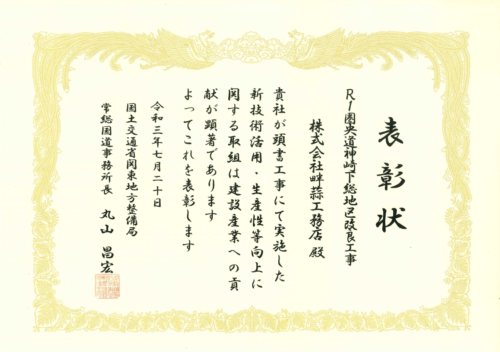 表彰状
R1圏央道神崎下総地区改良工事
株式会社畔蒜工務店 殿
貴社が頭書工事にて実施した
新技術活用・生産性等向上に
関する取組は建設産業への貢
献が顕著であります
よってこれを表彰します
令和三年七月二十日
国土交通省関東地方整備局
常総国道事務所長 丸山 昌宏